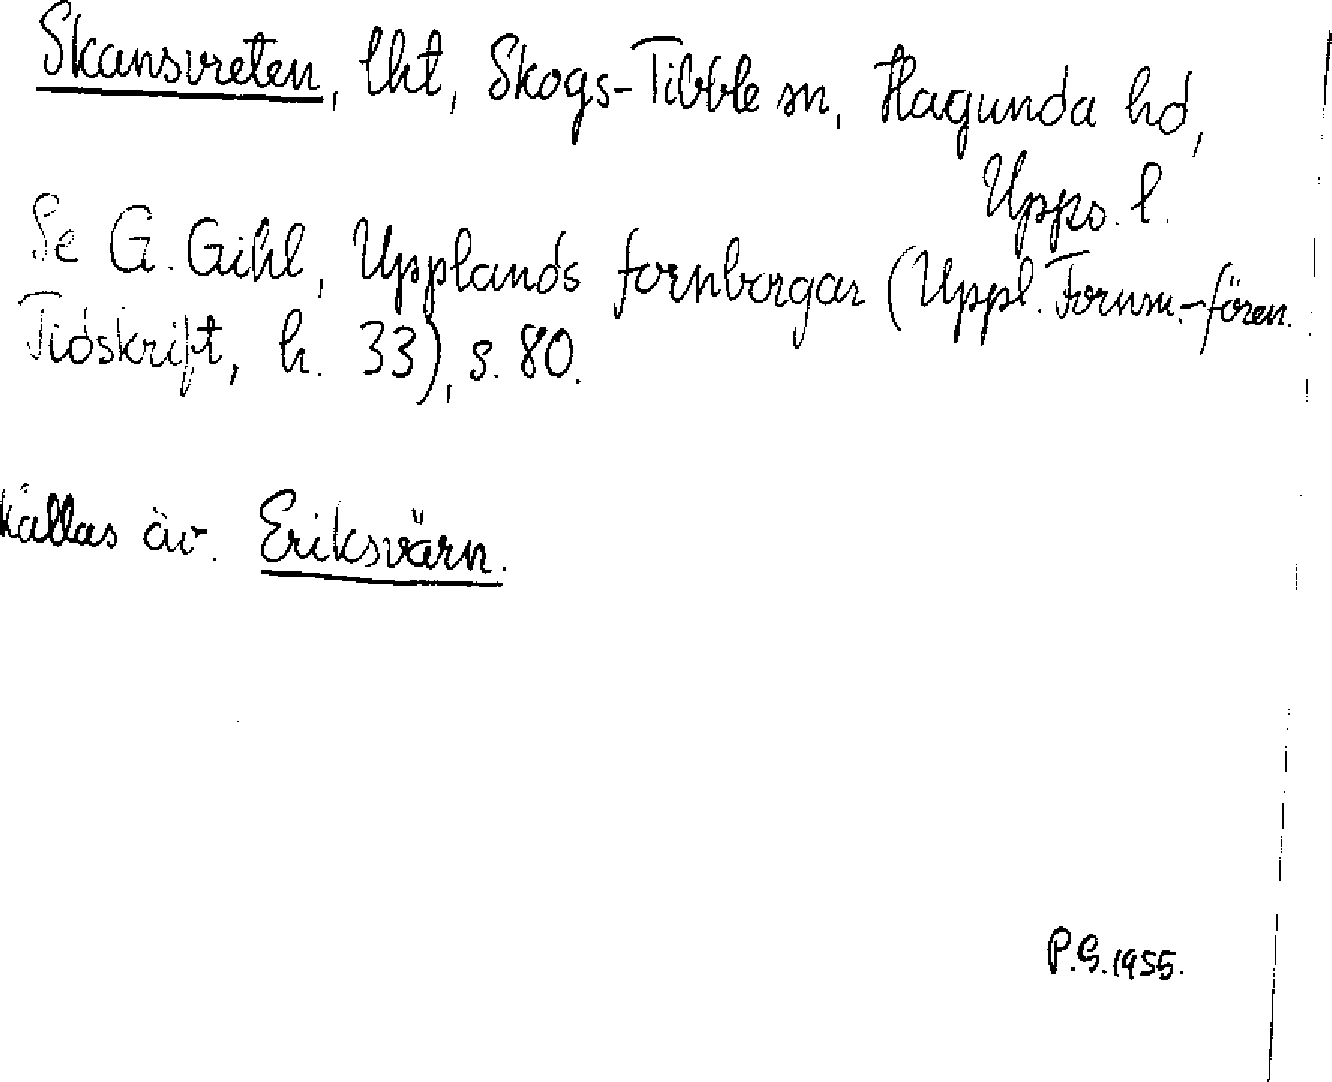 Skansvreten, lht, Skogs-Tibble sn, Hagunda hd,
Upps. l.
Se G. Gihl, Upplands fornborgar (Uppl. Fornm.-fören.
Tidskrift, h. 33), s. 80.
kallas äv. Eriksvärn.
P.G. 1955.